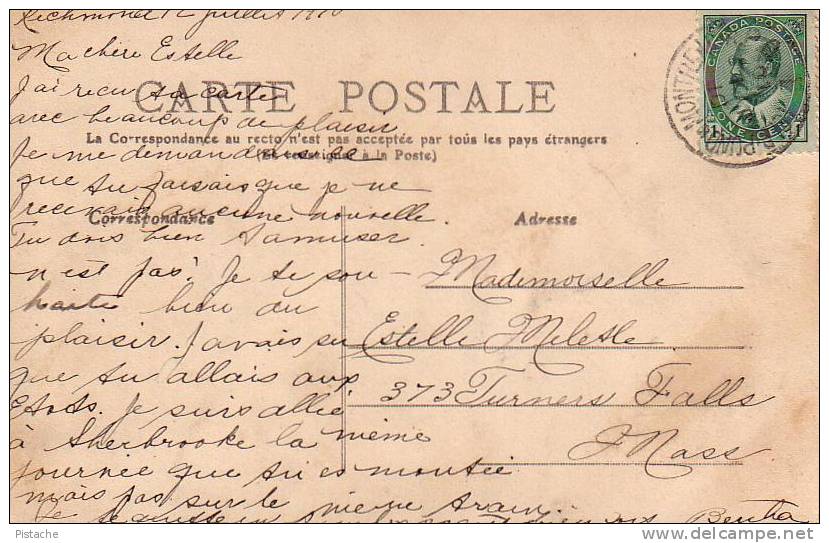 Richmond 12 juillet 1910
Ma chère Estelle
J'ai recu ta carte
avec beaucoup de plaisir
Je me demandais ce
que tu faisais que je ne
recevais aucune nouvelle.
Tu dois bien t'amuser
n'est pas? Je te sou-
haite bien du
plaisir. J'avais su
que tu allais aux
Etats. Je suis allée
à Sherbrooke la même
journée que tu es montée
mais pas sur le même train.
Bertha
CARTE POSTALE
La Correspondance au recto n'est pas acceptée par tous les pays étrangers
(Se renseigner à la Poste)
Correspondance
Adresse
Mademoiselle
Estelle
373 Turners Falls
Mass
CANADA POSTAGE
ONE CENT
MONTREAL
Pistache
www.delcampe.net